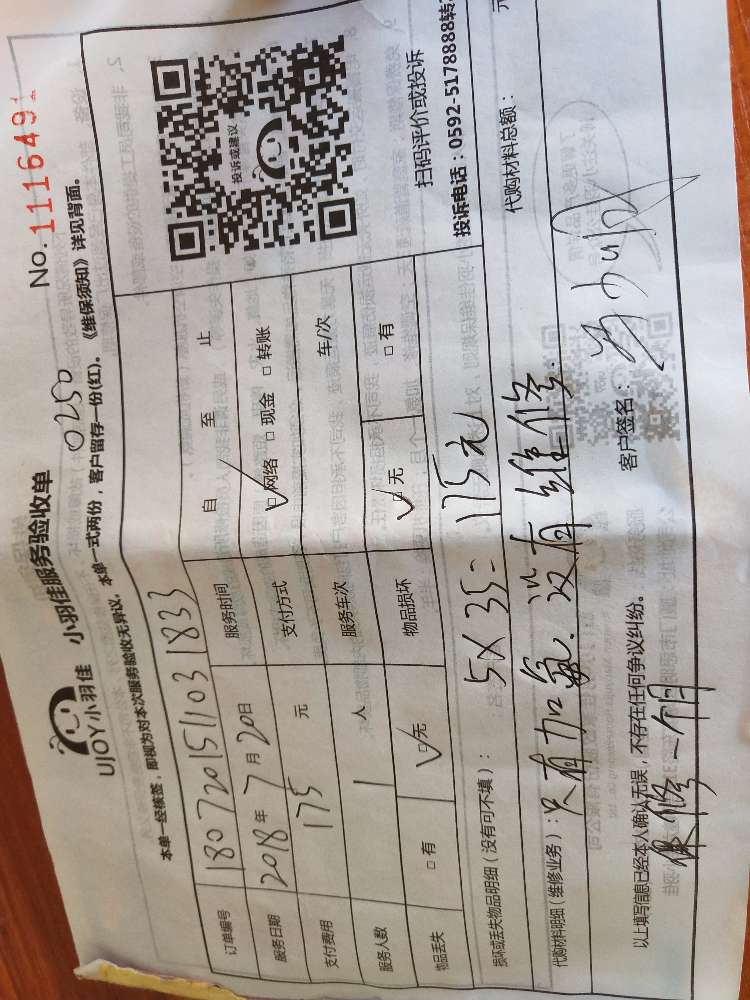 UJOY小羽佳 小羽佳服务验收单 No.1116491
0250
本单一经核签，即视为对本次服务验收无异议。本单一式两份，客户留存一份(红)。《维保须知》详见背面。
订单编号 180720151103 1833
服务日期 2018年7月20日 服务时间 自 至 止
支付费用 175 元 支付方式 □网络 □现金 □转账
服务人数 1 人 服务车次 车/次
物品丢失 □有 □无 物品损坏 □无 □有
投诉或建议
扫码评价或投诉
投诉电话：0592-5178888转
损坏或丢失物品明细（没有可不填）： 5X35=175元
代购材料明细（维修业务）：只有加氟.没有维修. 代购材料总额： 元
以上填写信息已经本人确认无误，不存在任何争议纠纷。 客户签名：
保修一个月